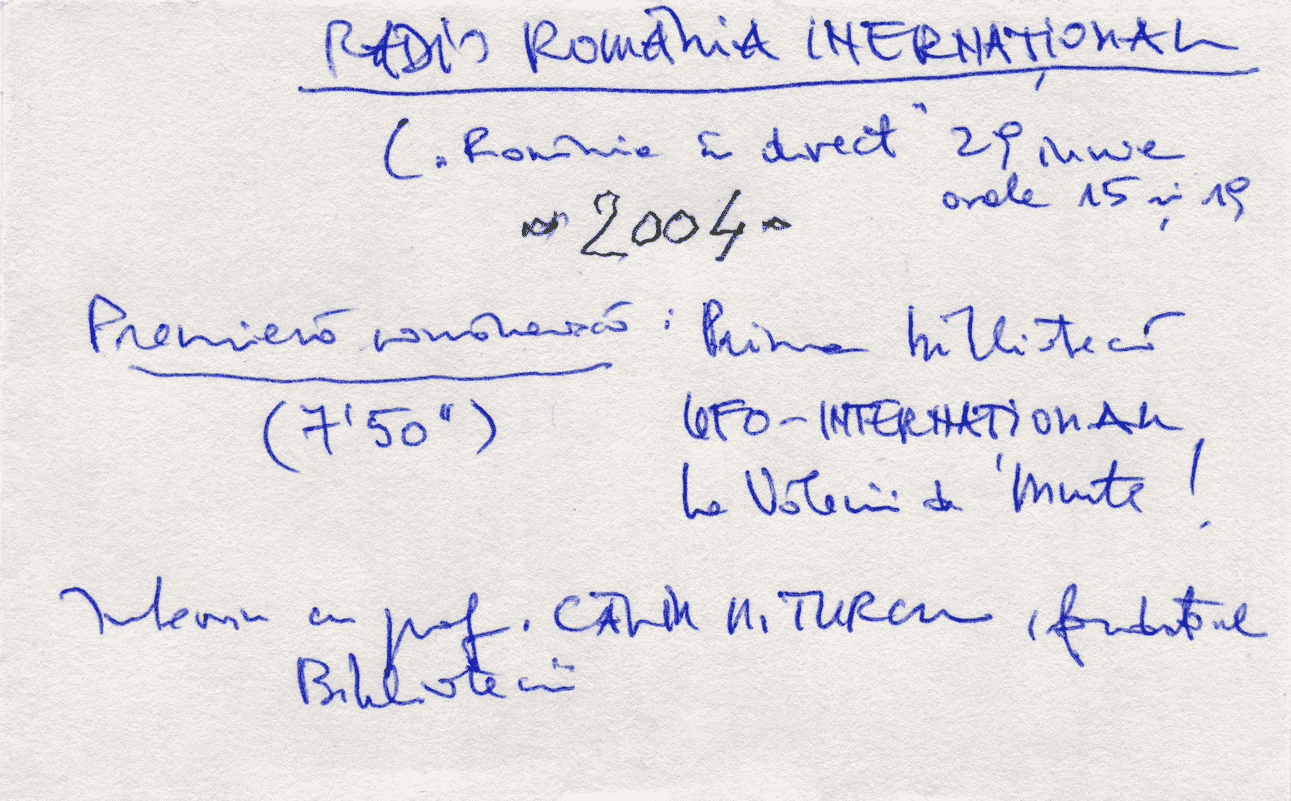 RADIO ROMÂNIA INERNAȚIONAL
("România în direct" 29 iunie
orele 15 și 19
2004
Premieră românească : Prima bibliotecă
(7'50") UFO-INTERNAȚIONAL
la Vălenii de Munte !
Interviu cu prof. CĂLIN N. TURCU, fondatorul
Bibliotecii